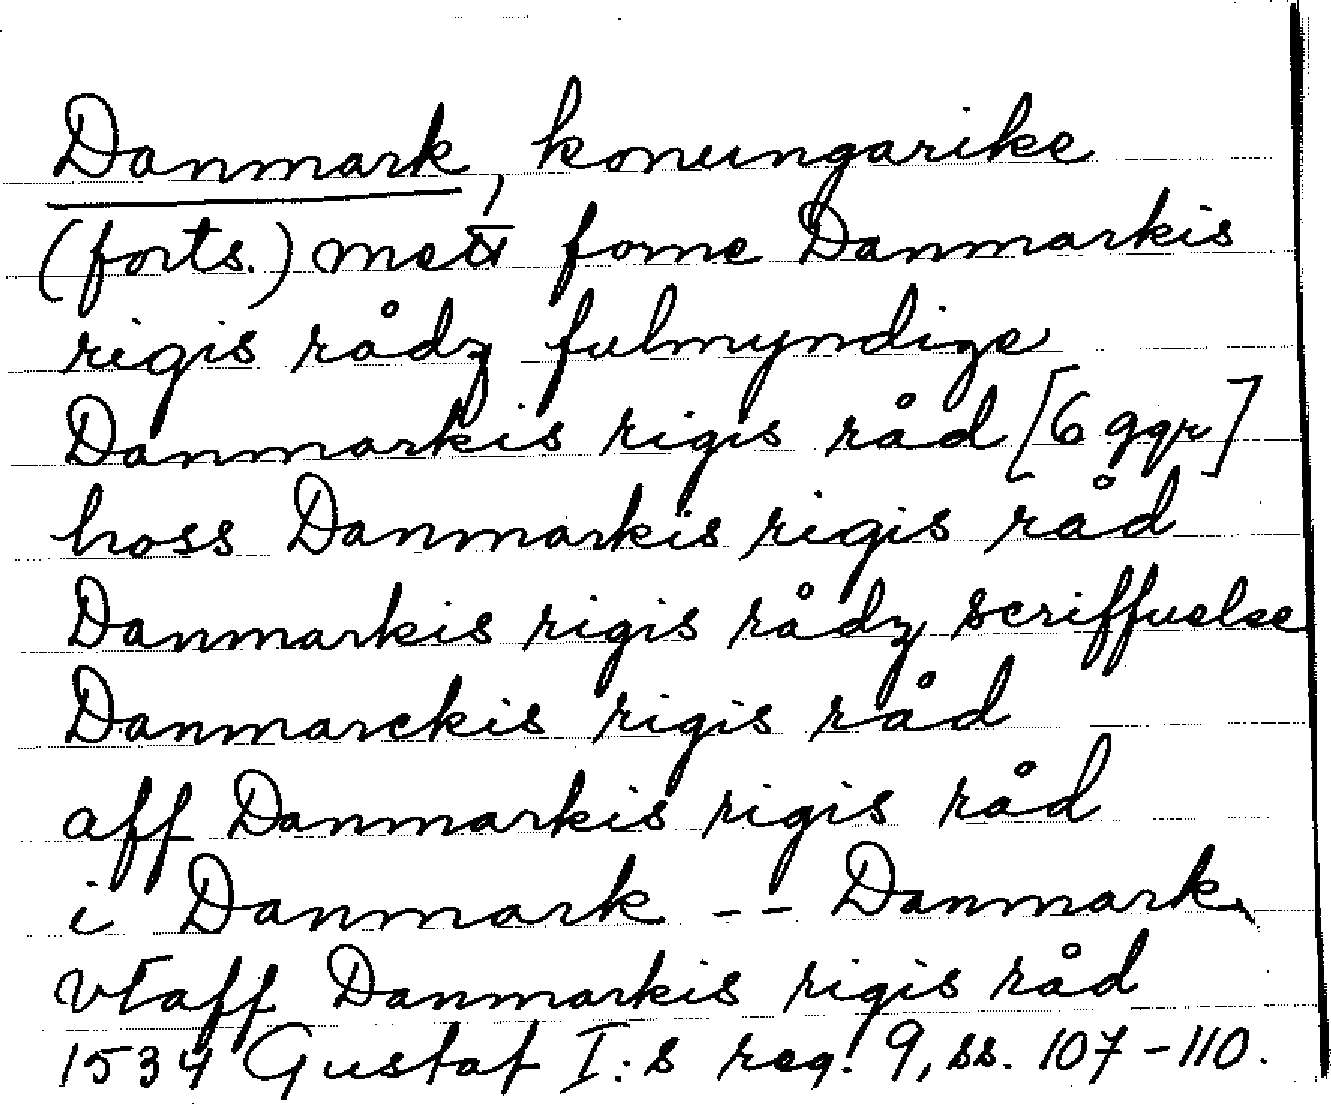 Danmark, konungarike
(forts.) mett forne Danmarkis
rigis rådz fulmyndige
Danmarkis rigis råd [6 ggr]
hoss Danmarkis rigis råd
Danmarkis rigis rådz scriffuelse
Danmarckis rigis råd
aff Danmarkis rigis råd
i Danmark -- Danmark
vtaff Danmarkis rigis råd
1534 Gustaf I:s reg. 9, ss. 107-110.